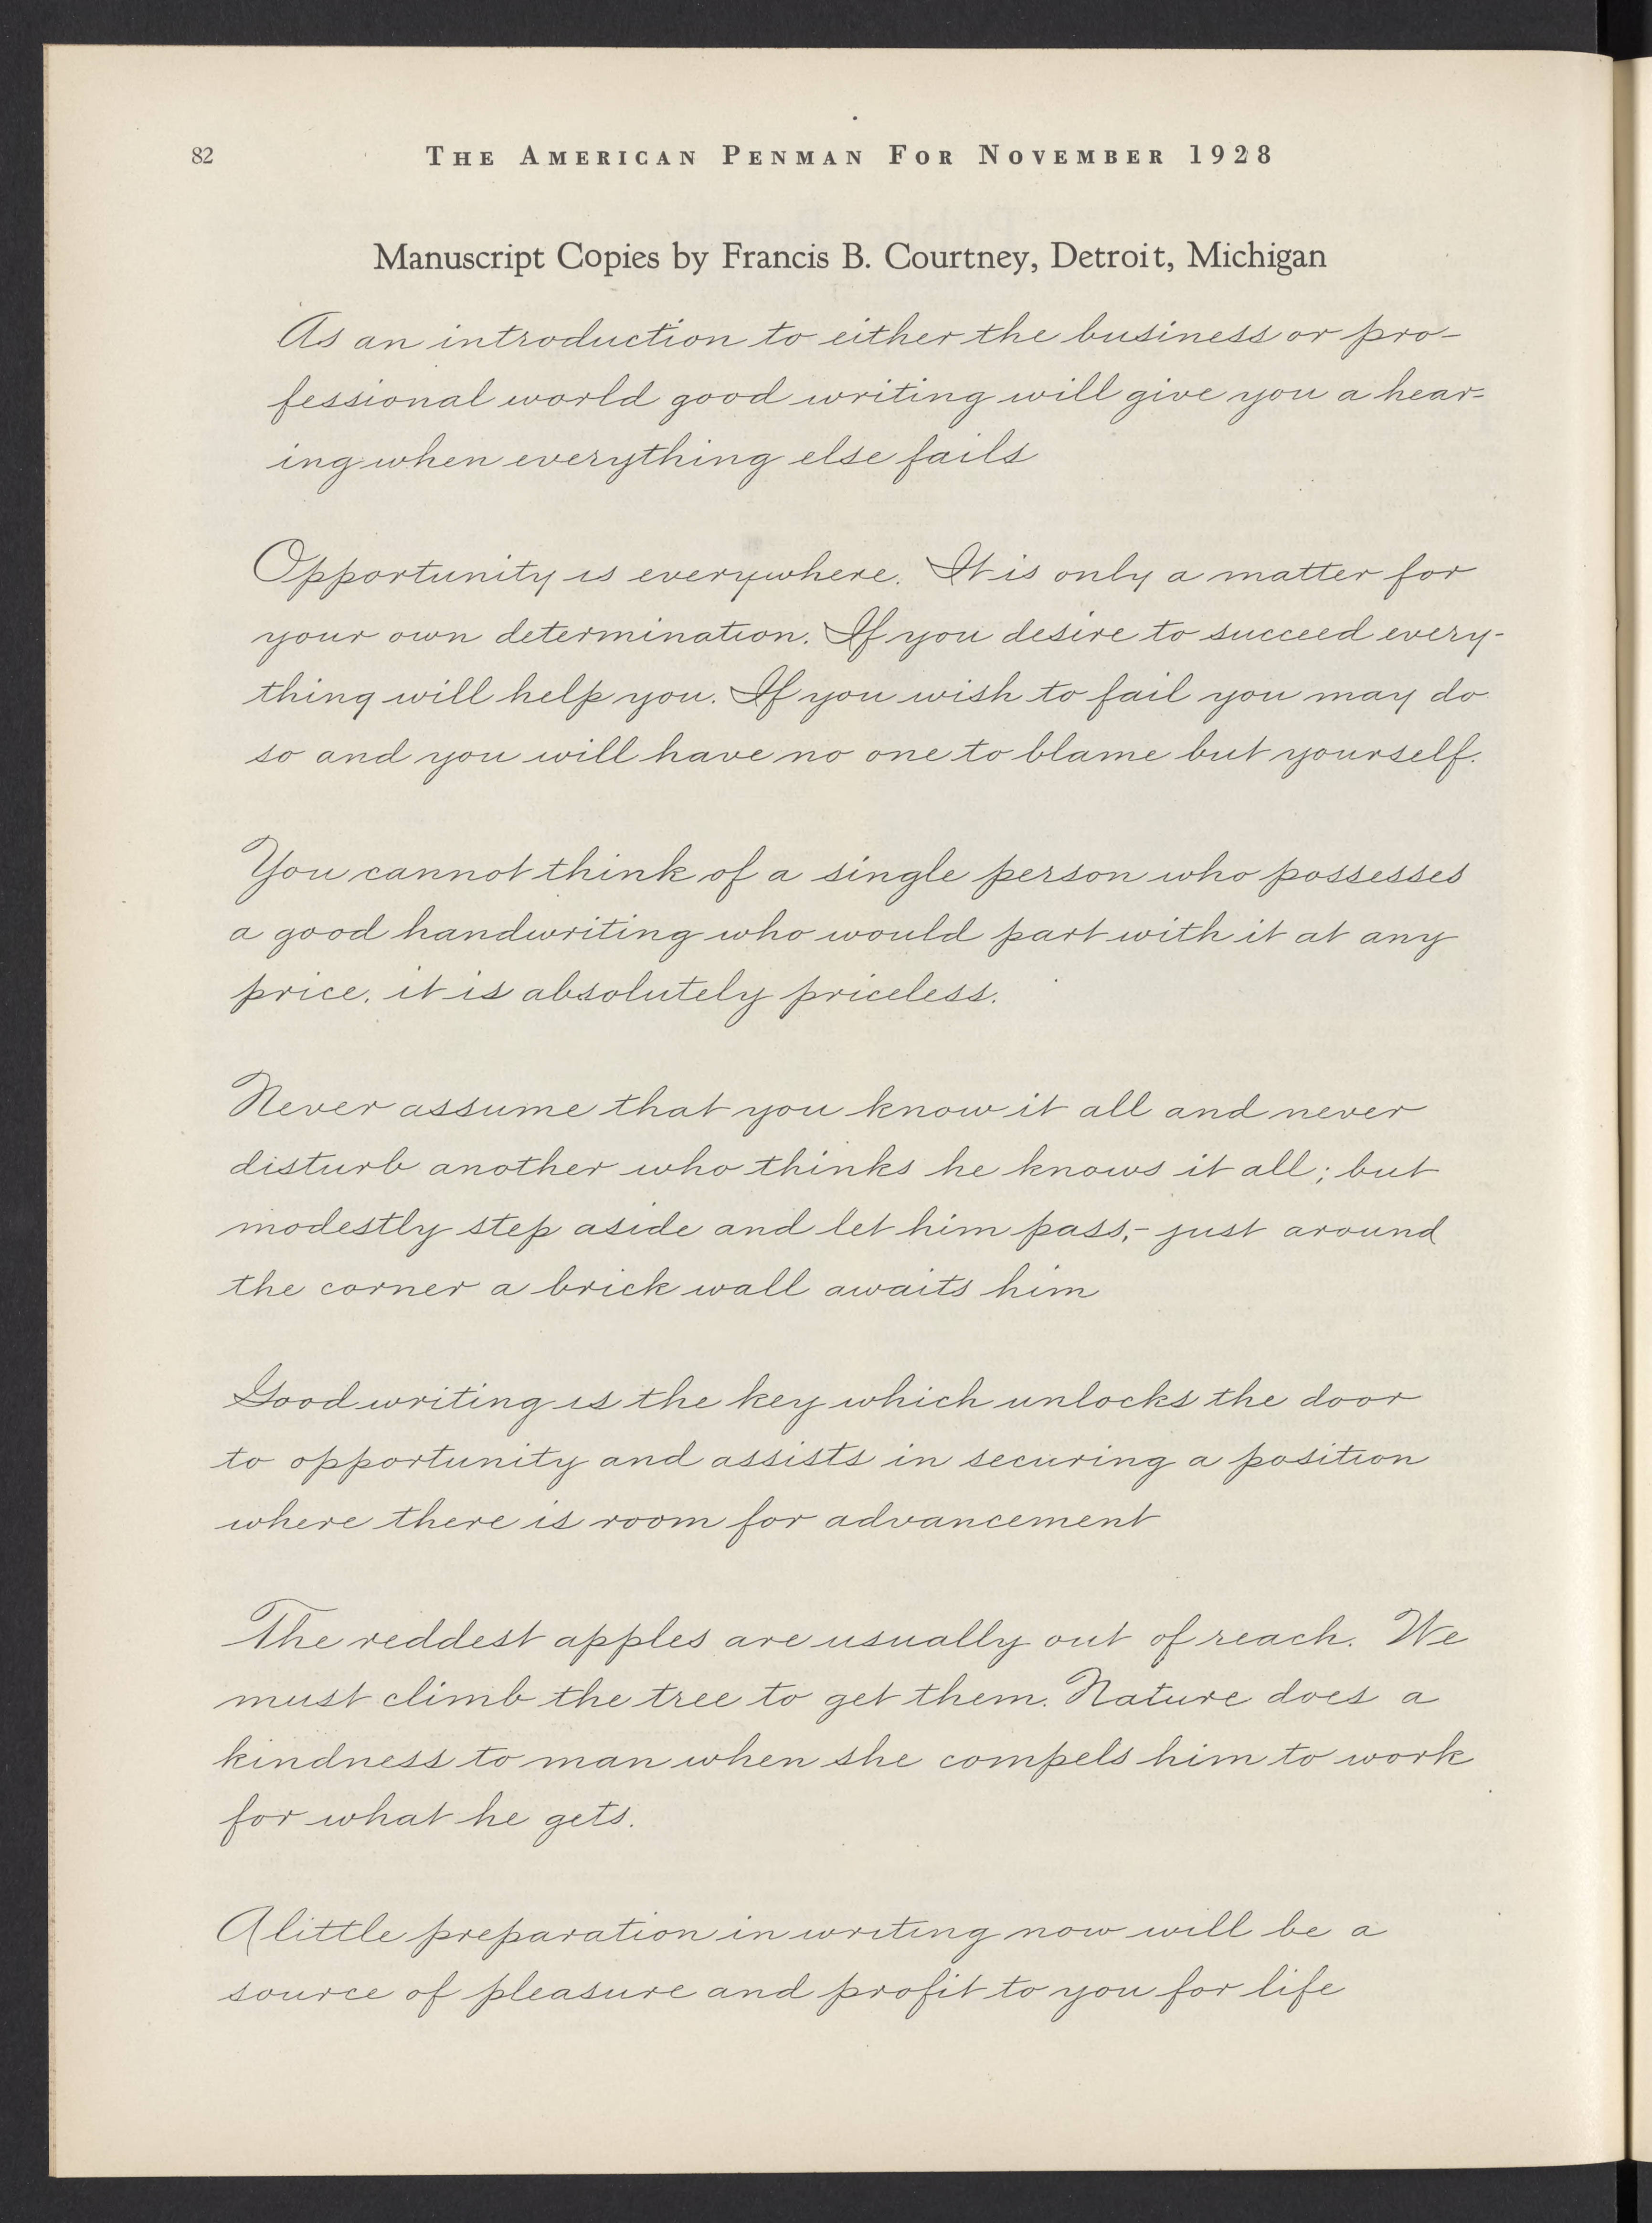 82 THE AMERICAN PENMAN FOR NOVEMBER 1928
Manuscript Copies by Francis B. Courtney, Detroit, Michigan
As an introduction to either the business or pro-
fessional world good writing will give you a hear=
ing when everything else fails
Opportunity is everywhere. It is only a matter for
your own determination. If you desire to succeed every-
thing will help you. If you wish to fail you may do
so and you will have no one to blame but yourself.
You cannot think of a single person who possesses
a good handwriting who would part with it at any
price. it is absolutely priceless.
Never assume that you know it all and never
disturb another who thinks he knows it all; but
modestly step aside and let him pass,- just around
the corner a brick wall awaits him
Good writing is the key which unlocks the door
to opportunity and assists in securing a position
where there is room for advancement
The reddest apples are usually out of reach. We
must climb the tree to get them. Nature does a
kindness to man when she compels him to work
for what he gets.
A little preparation in writing now will be a
source of pleasure and profit to you for life